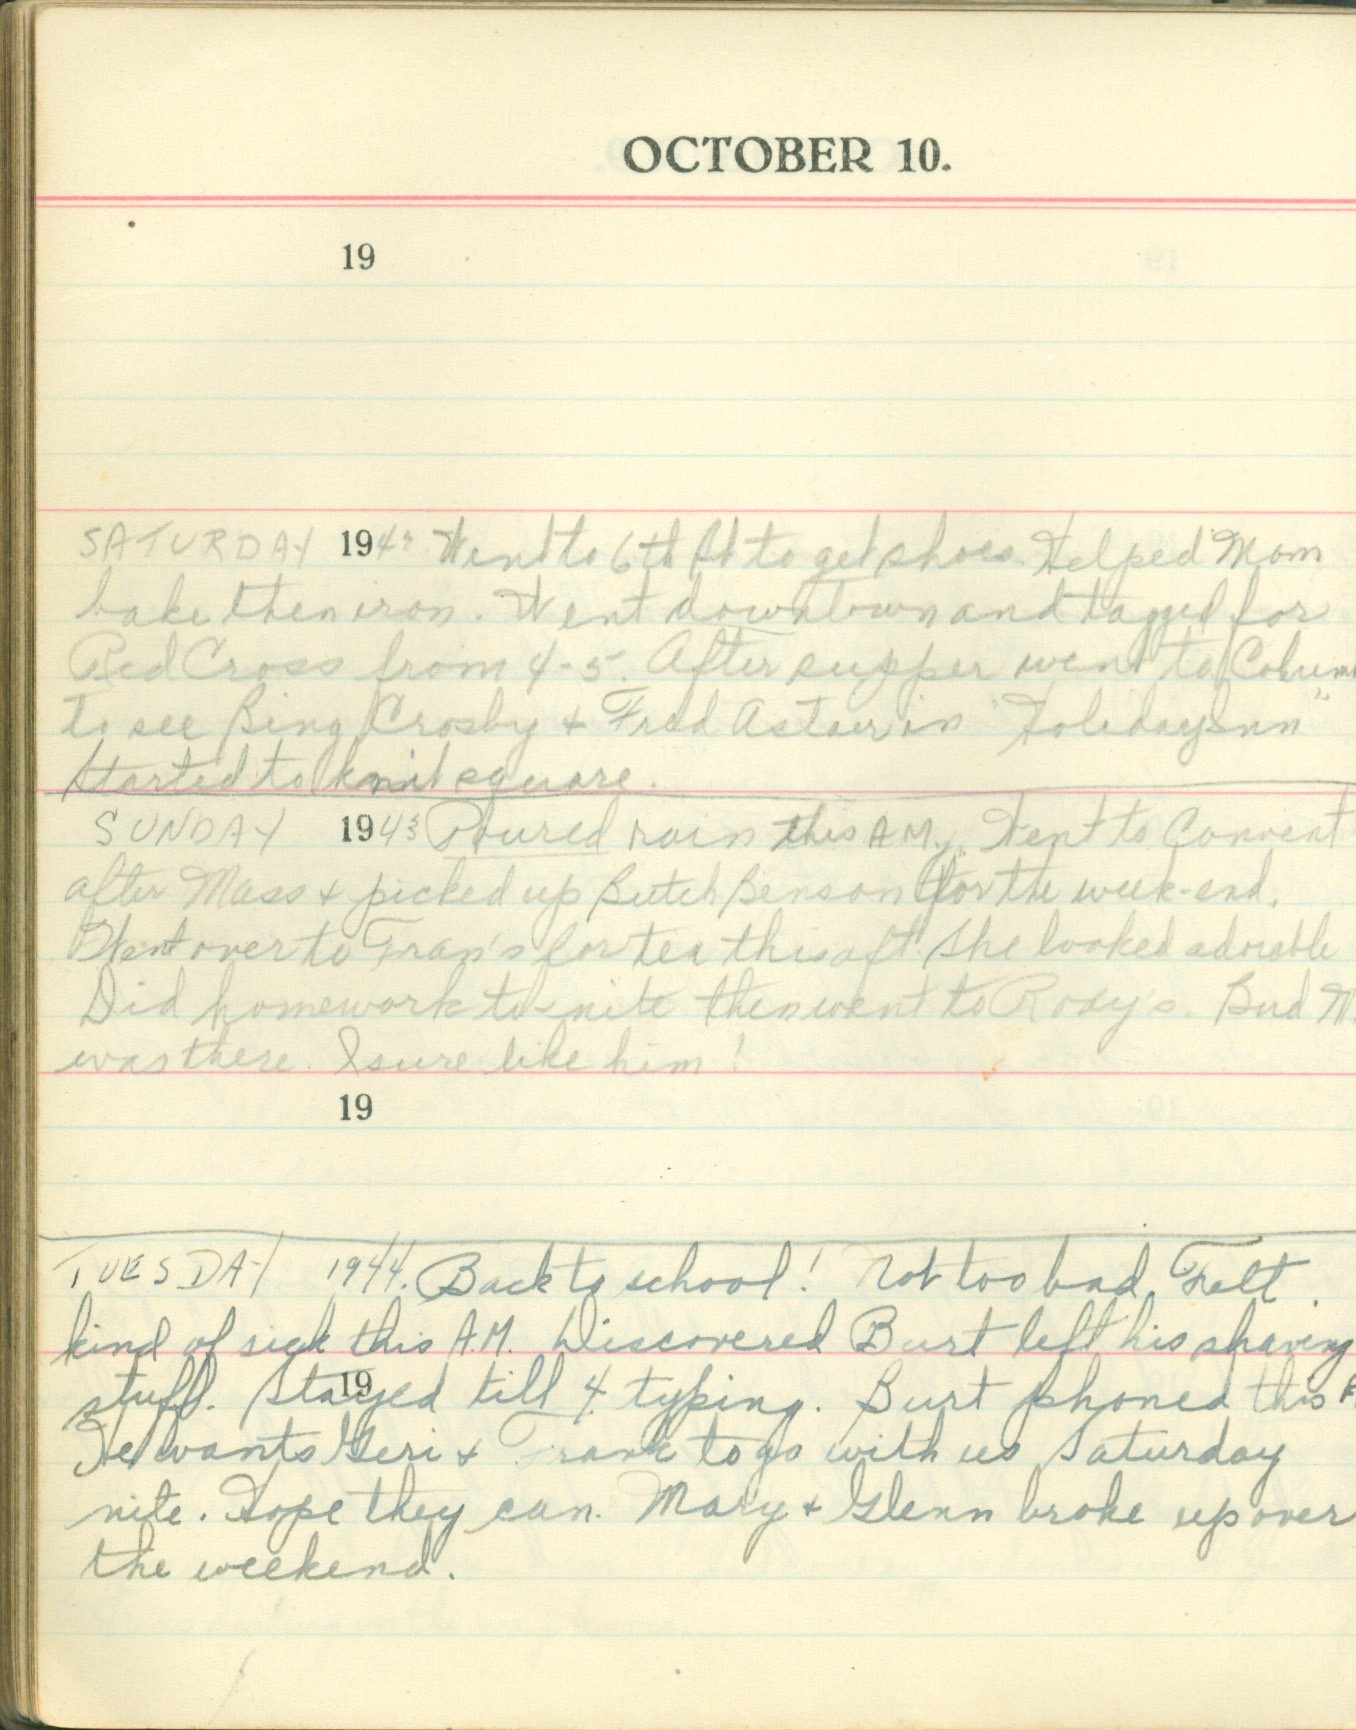 OCTOBER 10.
19
SATURDAY 1942 Went to 6th St to get shoes. Helped Mom
bake then iron. Went downtown and tagged for
Red Cross from 4-5. After supper went to
to see Bing Crosby + Fred Astair in "Holiday Inn"
Started to knit square.
SUNDAY 1943 Poured rain this A.M. Went to Convent
after Mass + picked up Butch Benson for the week-end.
Went over to Fran's for tea this aft. She looked adorable
Did homework to-nite then went to Roxy's. Bud W.
was there. I sure like him!
19
TUESDAY 1944. Back to school! Not too bad. Felt
kind of sick this A.M. Discovered Burt left his shaving
19
stuff. Stayed till 4 typing. Burt phoned this
He wants Geri + Frank to go with us Saturday
nite. Hope they can. Mary + Glenn broke up over
the weekend.